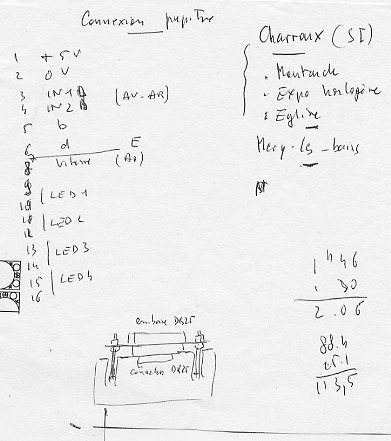 Connexion pupitre
1 + 5V
2 0 V
3 IN1 (AV-AR)
4 IN2
5 b
6 d E
7
8 vitesse (A0)
9
10 LED 1
11 LED 2
12
13 LED 3
14
15 LED 4
16
embase DB25
connecteur DB25
Charroux (SI)
. Moutarde
. Expo horlogère
. Eglise
Néry-les-bains
1h46
30
2.06
88.4
25.1
113,5